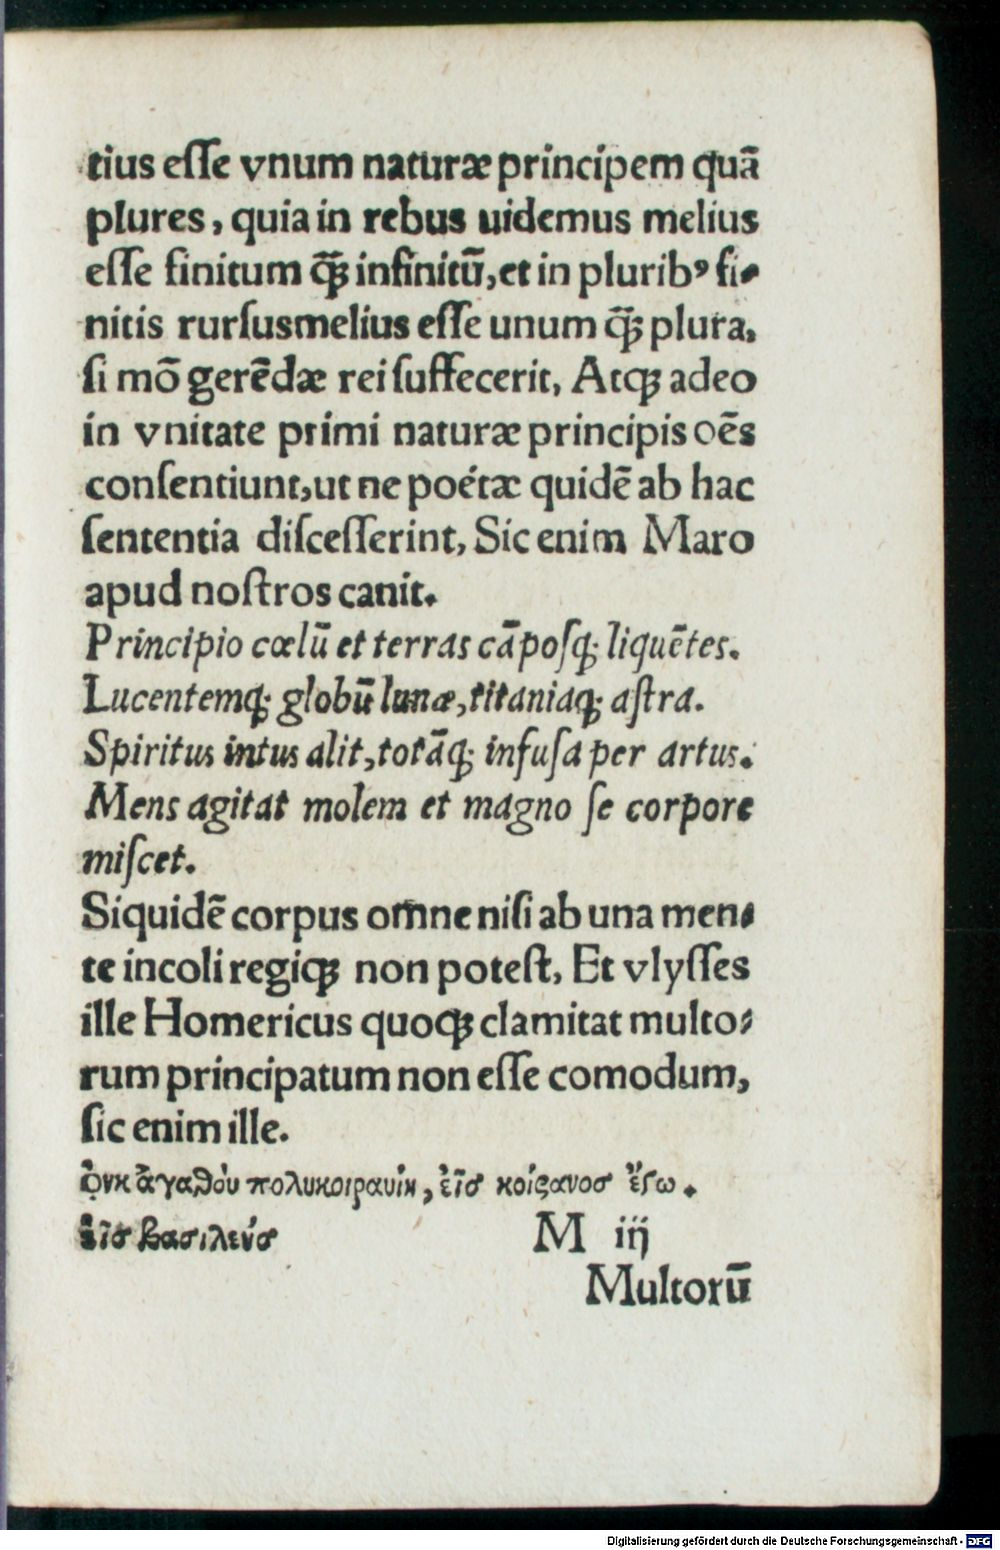 tius eſſe vnum naturæ principem quā
plures, quia in rebus uidemus melius
eſſe finitum q̄ꝫ infinitū, et in pluribꝰ fi-
nitis rurſusmelius eſſe unum q̄ꝫ plura,
ſi mō gerēdæ rei ſuffecerit, Atqꝫ adeo
in vnitate primi naturæ principis oēs
conſentiunt, ut ne poétæ quidē ab hac
ſententia diſceſſerint, Sic enim Maro
apud noſtros canit.
Principio cœlū et terras cāpoſqꝫ liquētes.
Lucentemqꝫ globū lunæ, titaniaqꝫ aſtra.
Spiritus intus alit, totāqꝫ infuſa per artus.
Mens agitat molem et magno ſe corpore
miſcet.
Siquidē corpus omne niſi ab una men-
te incoli regiqꝫ non poteſt, Et vlyſſes
ille Homericus quoqꝫ clamitat multo-
rum principatum non eſſe comodum,
ſic enim ille.
ὀυκ ἀγαθὸυ πολυκοιραυίη, ἐῖσ κοίρανοσ ἔϛω.
ἐῖσ βασιλεύσ M iij
Multorū
Digitalisierung gefördert durch die Deutsche Forschungsgemeinschaft - DFG